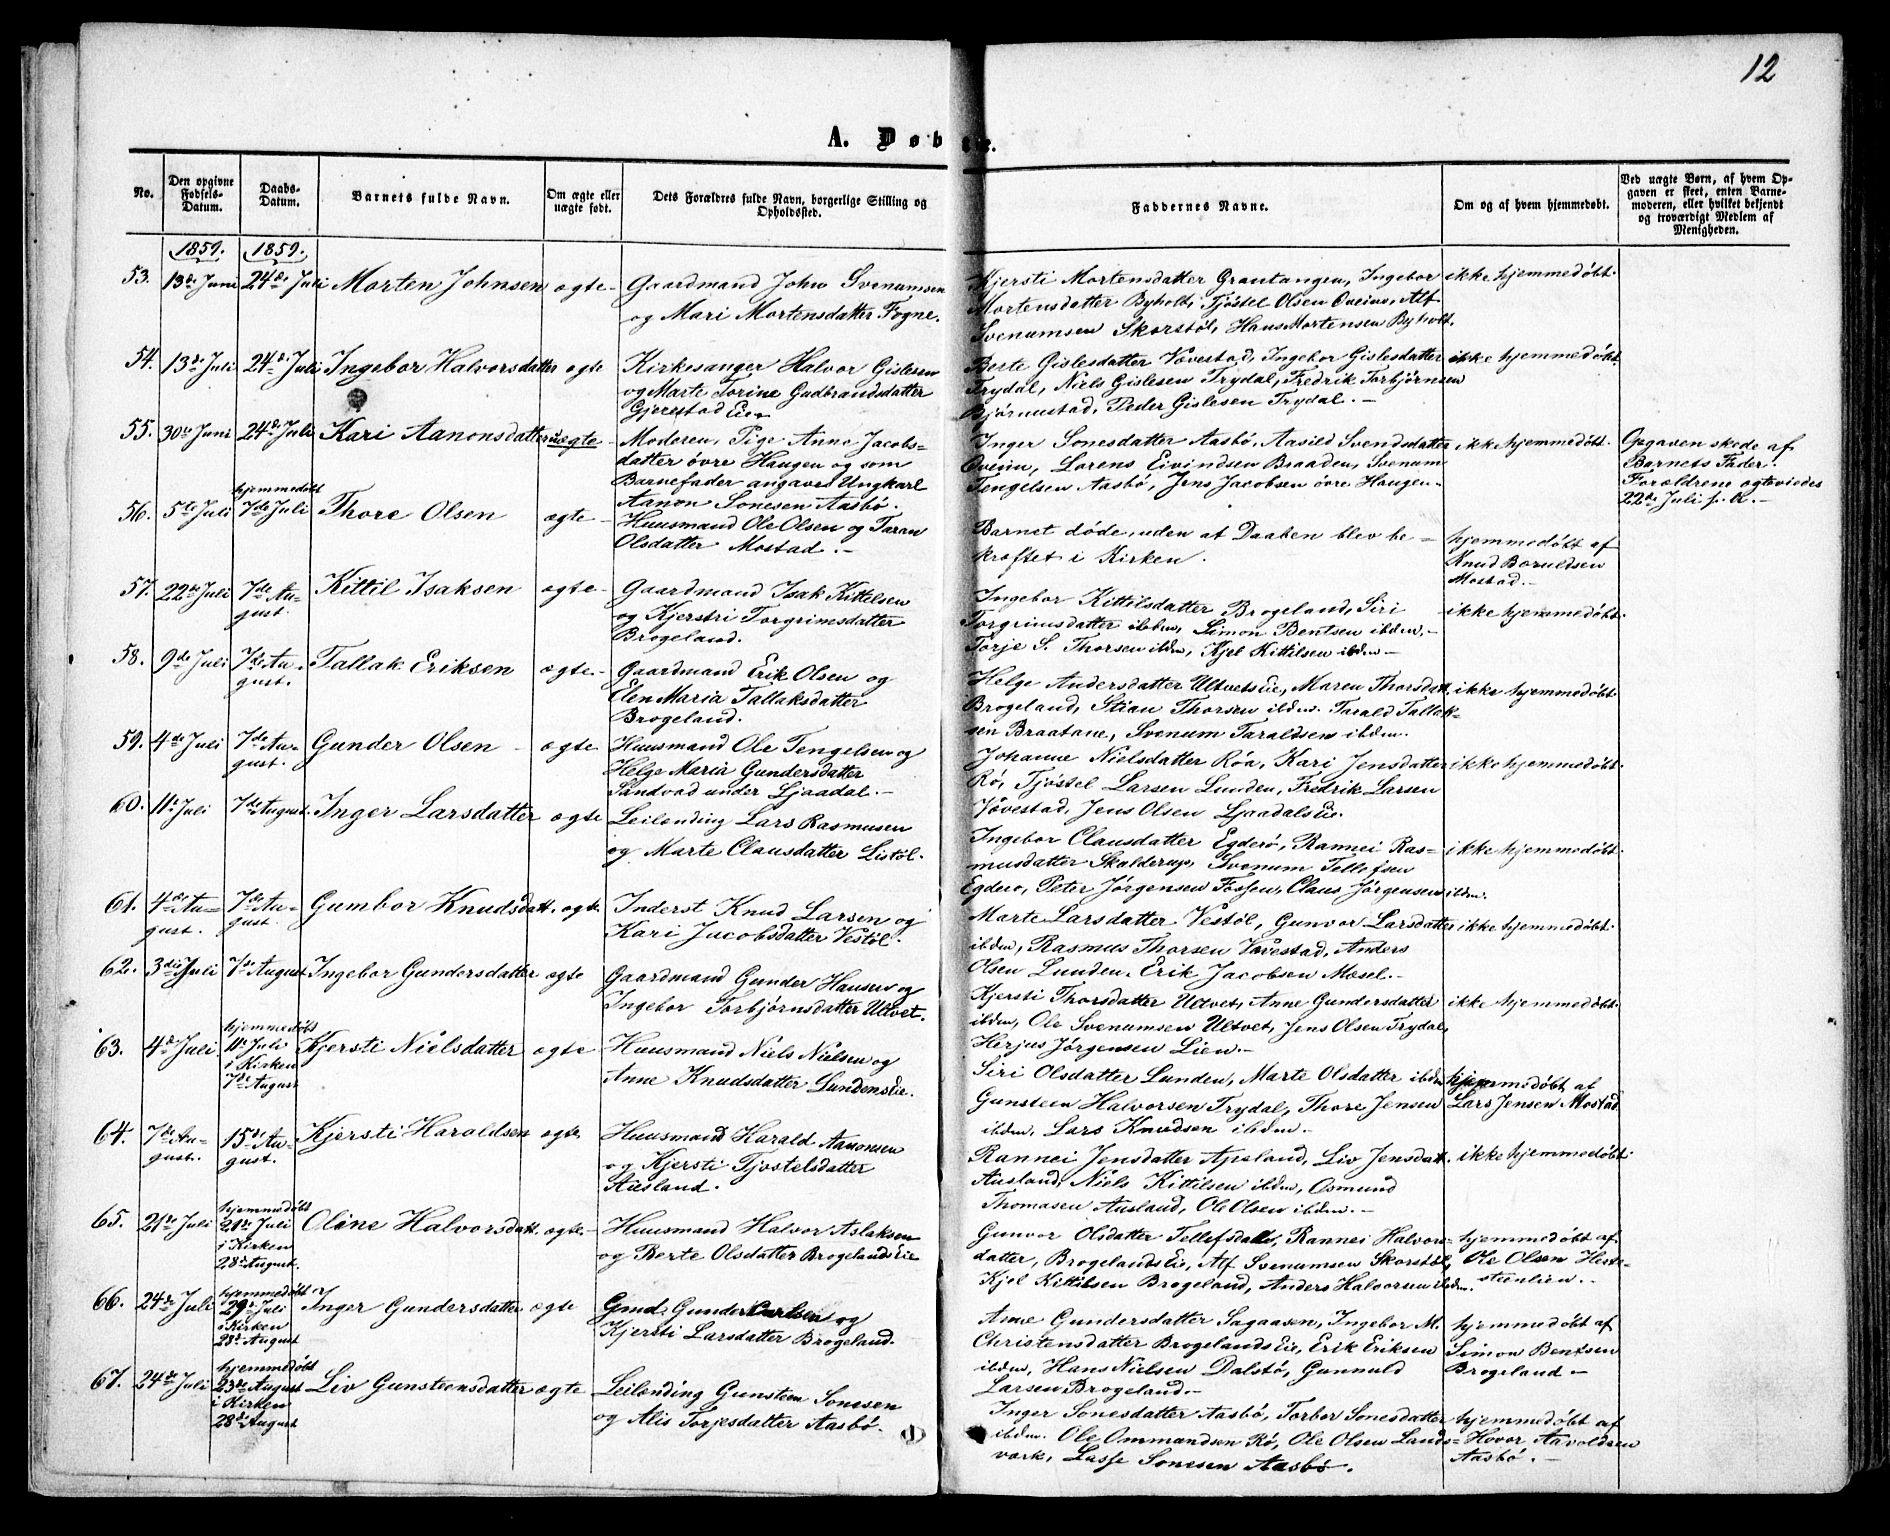 12
A. Døbte.
No.
Den opgivne Fødsels-Datum.
Daabs-Datum.
Barnets fulde Navn.
Om ægte eller uægte født.
Dets Forældres fulde Navn, borgerlige Stilling og Opholdssted.
Faddernes Navne.
Om og af hvem hjemmedøbt.
Ved uægte Børn, af hvem Opgaven er skeet, enten Barnemoderen, eller hvilket bekjendt og troværdigt Medlem af Menigheden.
1859. 1859.
53. 13de Juni 24de Juli Morten Johnsen ægte-
Gaardmand John Svenumsen
og Mari Mortensdatter Fogne.
Kjersti Mortensdatter Grautangen, Ingebor
Mortensdatter Byholt, Tjøstel Olsen Oveine, Alf
Svenumsen Skorstøl, Hans Mortensen Byholt.
ikke hjemmedøbt.
54. 13de Juli 24de Juli Ingebor Halvorsdatter ægte
Kirkesanger Halvor Gislesen
og Marte Torine Gudbrandsdatter
Gjerestad Eie.
Berte Gislesdatter Vævestad, Ingebor Gislesdatter
Trydal, Niels Gislesen Trydal, Fredrik Torbjørnsen
Bjørnestad, Peder Gislesen Trydal.-
ikke hjemmedøbt.
55. 30te Juni 24de Juli Kari Aanonsdatter uægte
Moderen, Pige Anne Jacobs-
datter øvre Haugen og som
Barnefader angaves Ungkarl
Aanon Sonesen Aasbø.
Inger Sonesdatter Aasbø, Aasild Svendsdatter
Oveine, Lorens Eivindsen Braaden, Svenum
Tengelsen Aasbø, Jens Jacobsen øvre Haugen-
ikke hjemmedøbt.
Opgaven skede af
Barnets Fader.
Forældrene ægteviedes
22de Juli s. A.-
56. 5te Juli hjemmedøbt
7de Juli Thore Olsen ægte-
Huusmand Ole Olsen og Taran
Olsdatter Mostad.-
Barnet døde, uden at Daaben blev be-
kræftet i Kirken.
hjemmedøbt af
Knud Baruldsen
Mostad.-
57. 22de Juli 7de Au-
gust. Kittil Isaksen ægte-
Gaardmand Isak Kittelsen
og Kjerstri Torgrimsdatter
Brogeland.
Ingebor Kittilsdatter Brogeland, Siri
Torgrimsdatter ibdm, Simon Bentsen ibdm,-
Torje S. Thorsen ibdm, Kjel Kittilsen ibdm-
ikke hjemmedøbt.
58. 9de Juli 7de Au-
gust. Tallak Eriksen ægte-
Gaardmand Erik Olsen og
Elen Maria Tallaksdatter
Brogeland.
Helge Andersdatter UltvetsEie, Maren Thorsdatt.
Brogeland, Stian Thorsen ibdm. Tarald Tallak-
sen Braatane, Svenum Taraldsen ibdm.
ikke hjemmedøbt.
59. 4de Juli 7de Au-
gust. Gunder Olsen - ægte
Huusmand Ole Tengelsen og
Helge Maria Gundersdatter
Sandvad under Ljaadal.-
Johanne Nielsdatter Røa, Kari Jensdatter
Rø, Tjøstel Larsen Lunden, Fredrik Larsen
Vævestad, Jens Olsen LjaadalsEie.
ikke hjemmedøbt.
60. 11te Juli 7de August. Inger Larsdatter ægte
Leilending Lars Rasmusen
og Marte Clausdatter Listøl.
Ingebor Clausdatter Egderø, Rannei Ras-
musdatter Skalderup, Svenum Tellefsen
Egderø, Peter Jørgensen Fossen, Claus Jørgensen ibdm.
ikke hjemmedøbt.
61. 4de Au-
gust. 7de Au-
gust. Gumbor Knudsdatt. ægte
Inderst Knud Larsen og
Kari Jacobsdatter Vestøl.
Marte Larsdatter Vestøl, Gunvor Larsdatter
ibdm, Rasmus Thorsen Vævestad, Anders
Olsen Lunden, Erik Jacobsen Mæsel.-
ikke hjemmedøbt.
62. 3die Juli 7de August Ingebor Gundersdatter ægte
Gaardmand Gunder Hansen og
Ingebor Torbjørnsdatter Ultvet.
Kjersti Thorsdatter Ultvet, Anne Gundersdatter
ibdm, Ole Svenumsen Ultvet, Jens Olsen Trydal,
Herjus Jørgensen Lien.-
ikke hjemmedøbt.
63. 4de Juli hjemmedøbt
11te Juli
i Kirken
7de August Kjersti Nielsdatter ægte-
Huusmand Niels Nielsen og
Anne Knudsdatter LundensEie.
Siri Olsdatter Lunden, Marte Olsdatter ibdm
Gunsteen Halvorsen Trydal, Thore Jensen
ibdm, Lars Knudsen ibdm.-
hjemmedøbt af
Lars Jensen Mostad.
64. 7de Au-
gust. 15de Au-
gust. Kjersti Haroldsen ægte
Huusmand Harald Aanonsen
og Kjersti Tjøstelsdatter
Ausland.
Rannei Jensdatter Apeland, Liv Jensdatt.
Ausland, Niels Kittilsen ibdm, Osmund
Thomasen Ausland, Ole Olsen ibdm.-
ikke hjemmedøbt.
65. 21de Juli hjemmedøbt
21de Juli
i Kirken
28de August. Oline Halvorsdatt. ægte-
Huusmand Halvor Aslaksen
og Berte Olsdatter BrogelandsEie
Gunvor Olsdatter Tellefsdal, Rannei Halvors-
datter, BrogelandsEie, Alf Svenumsen Skorstøl,
Kjel Kittilsen Brogeland, Anders Halvorsen ibdm.
hjemmedøbt af
Ole Olsen Heste-
steenlien.-
66. 24de Juli hjemmedøbt
29de Juli
i Kirken
28de August Inger Gundersdatter ægte
Gmd. Gunder Carlsen og
Kjersti Larsdatter Brogeland.
Anne Gundersdatter Sagaasen, Ingebor M.
Christensdatter BrogelandsEie, Erik Eriksen
ibdm, Hans Nielsen Dalstø, Gunnuld
Larsen Brogeland.-
hjemmedøbt af
Simon Bentsen
Brogeland-
67. 24de Juli hjemmedøbt
23de August
i Kirken
28de August Liv Gunsteensdatter ægte
Leilending Gunsteen Sonesen
og Alis Torjesdatter Aasbø.
Inger Sonesdatter Aasbø, Torbor Sonesdatter
ibdm. Ole Ommundsen Rø, Ole Olsen Lands-
værk, Lasse Sonesen Aasbø.
hjemmedøbt af
Hovor Aavoldsen
Aasbø.-